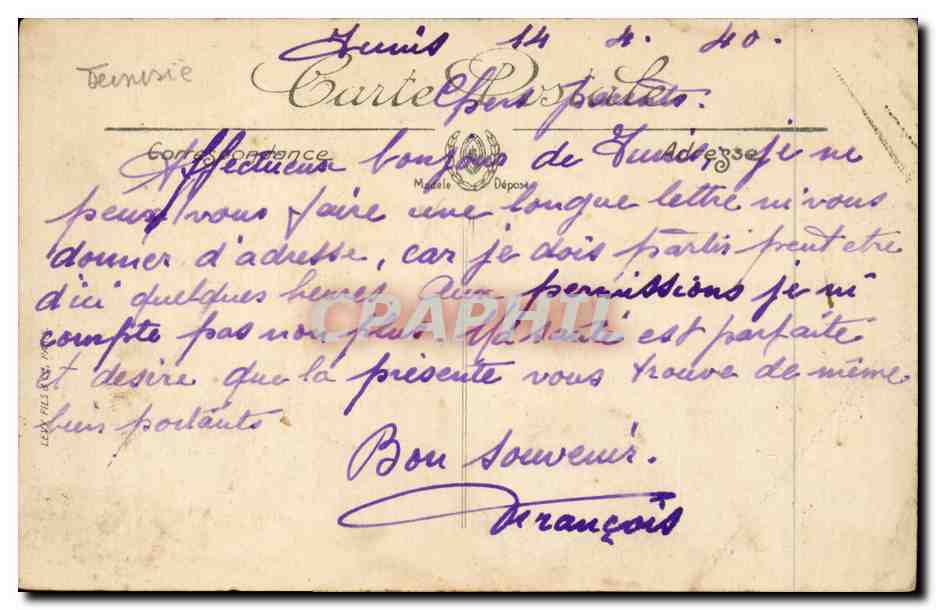 Tunis 14 4. 40.
Tunisie
Carte Postale
Chers parents.
Correspondance
Adresse
Modèle Déposé
Affectueux bonjour de Tunis je ne
peux vous faire une longue lettre ni vous
donner d'adresse, car je dois partir peut etre
d'ici quelques heures. Aux permissions je ni
compte pas non plus. Ma santé est parfaite
et desire que la présente vous trouve de même
bien portants
Bon souvenir.
François
LEVY FILS & CIE, PARIS
CPAPHIL